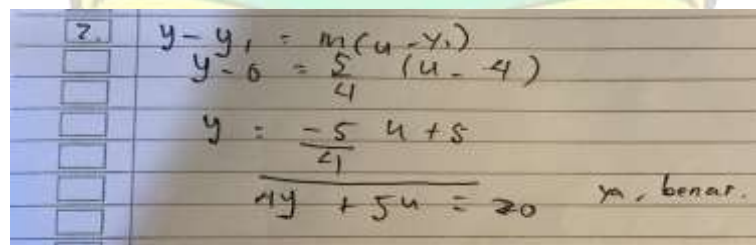 2. y - y₁ = m(u - y₁)
y - 0 = 5/4 (u - 4)
y = -5/4 u + 5
4y + 5u = 20 ya, benar.